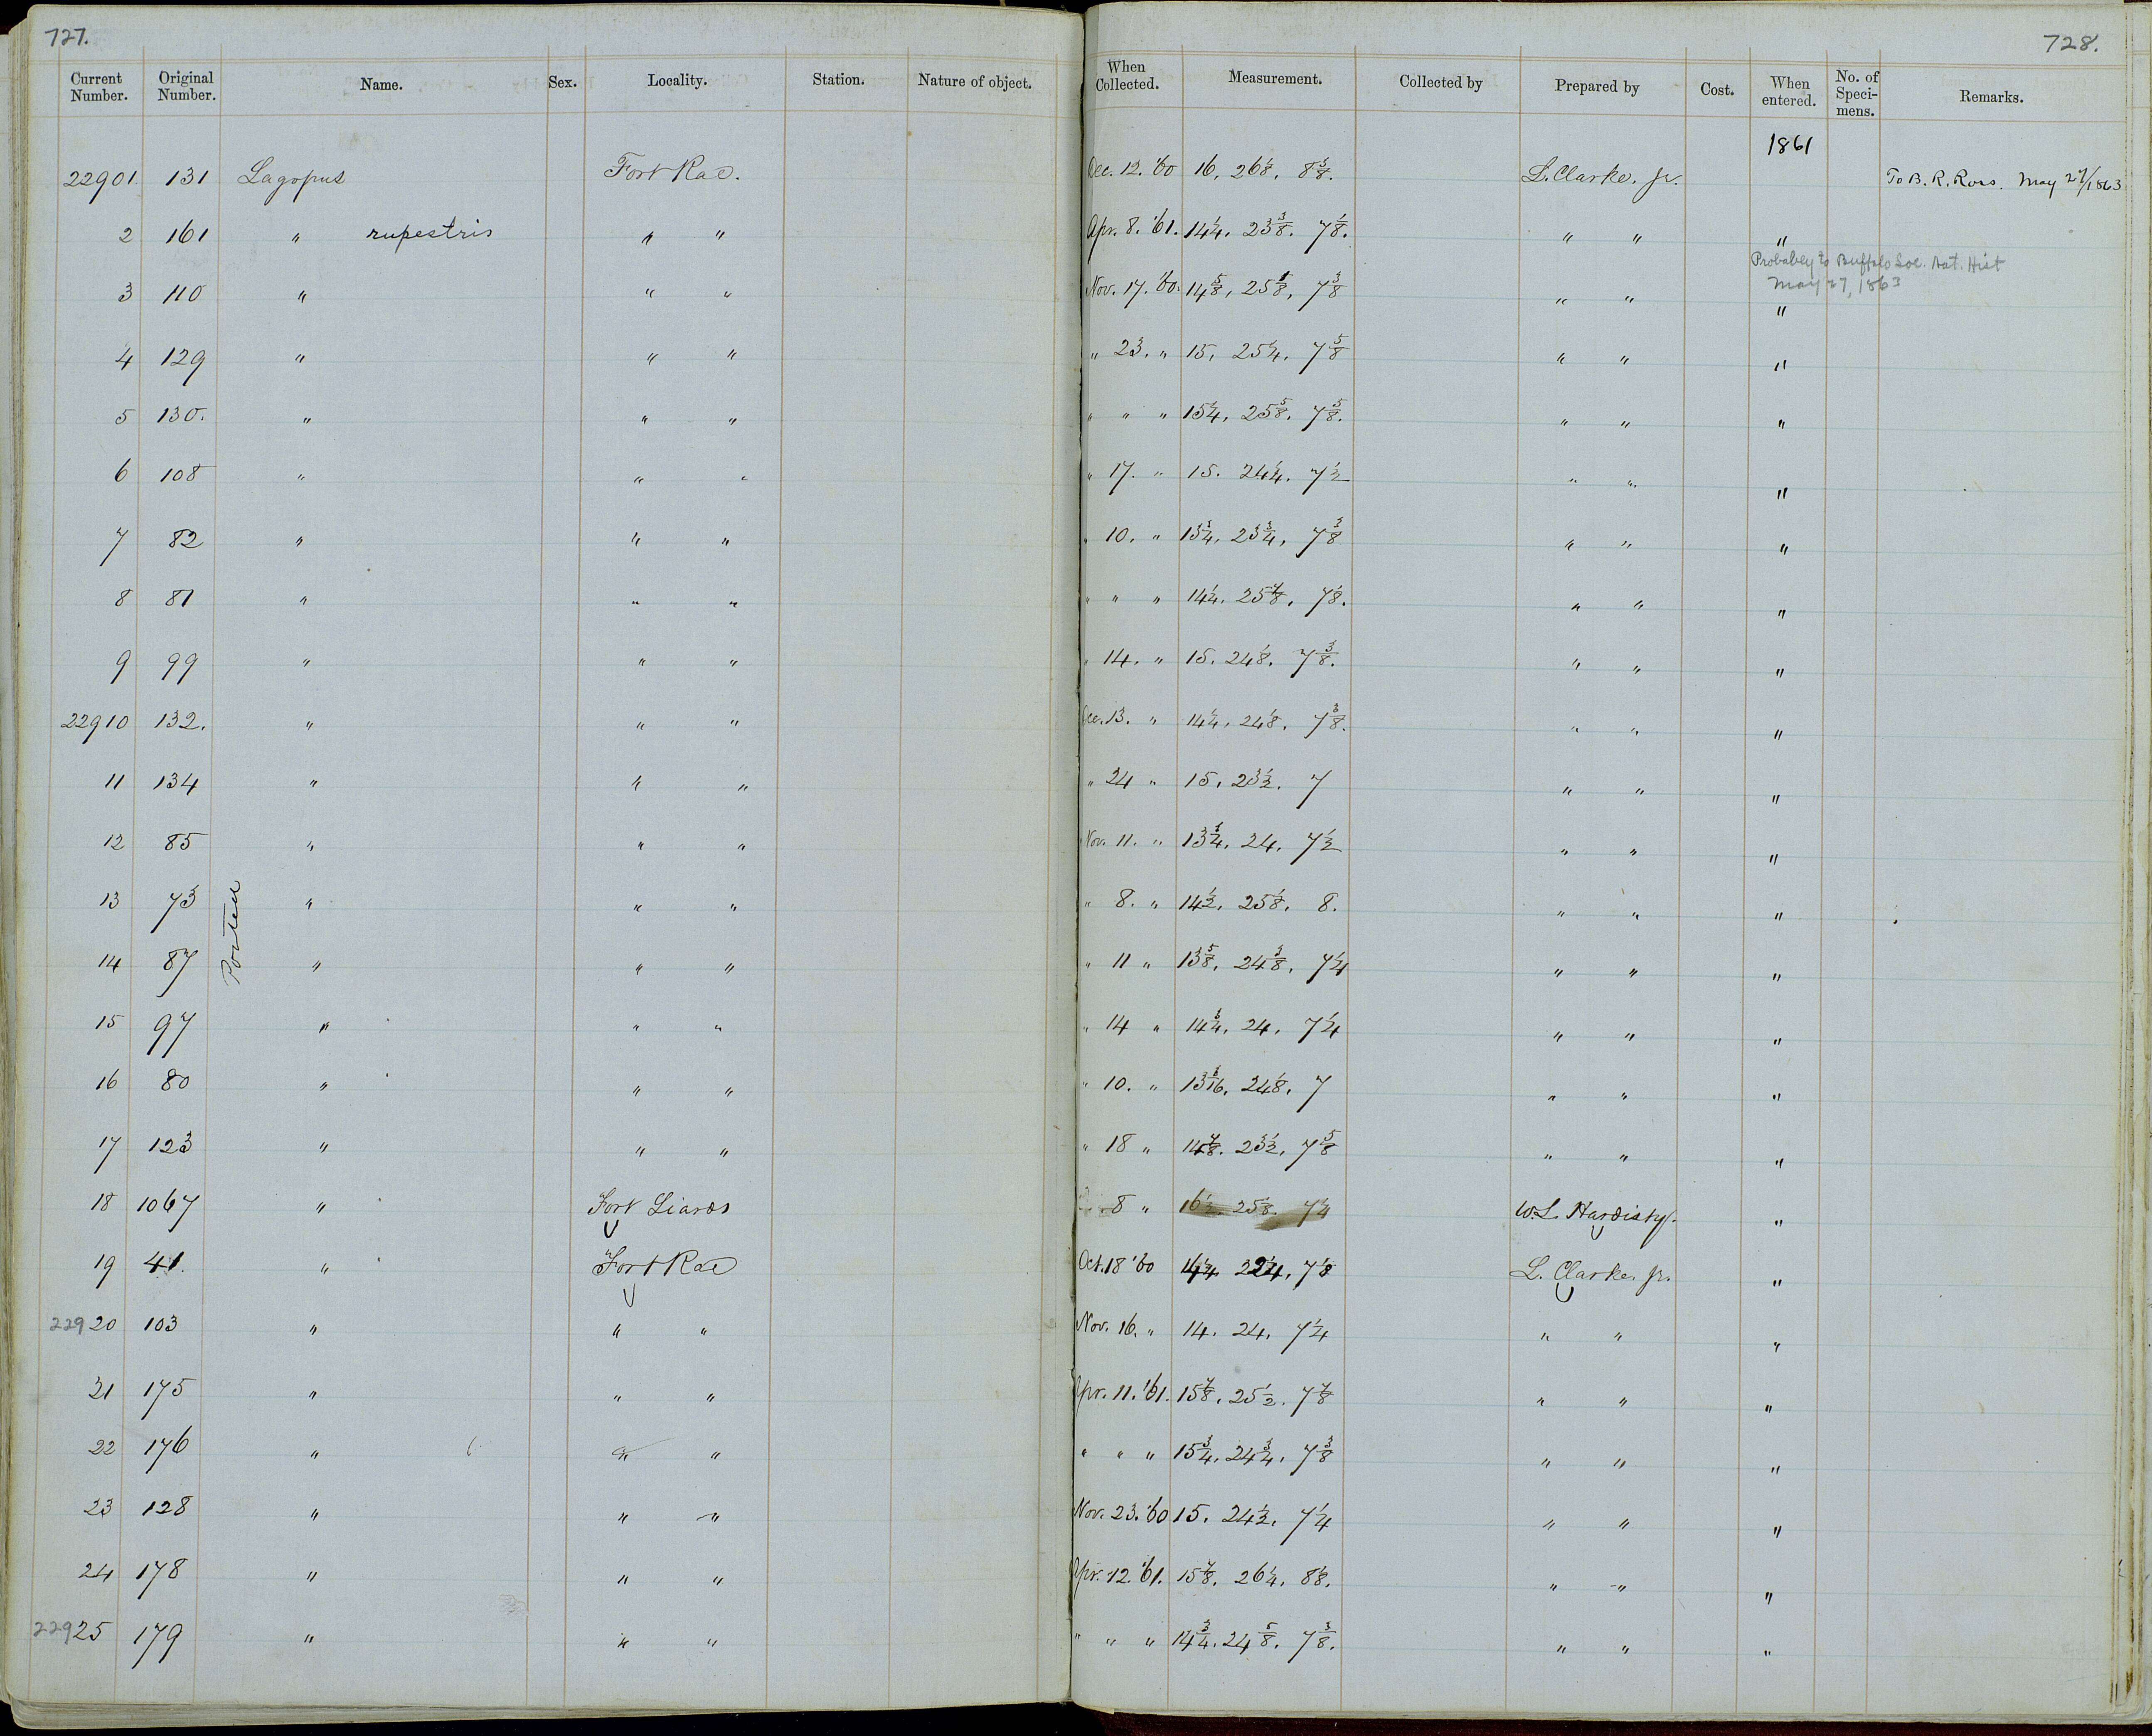 727.
728.
Current Number. Original Number. Name. Sex. Locality. Station. Nature of object. When Collected. Measurement. Collected by Prepared by Cost. When entered. No. of Speci-mens. Remarks.
1861
22901 131 Lagopus Fort Rae. Dec. 12. '60 16, 26 1/8, 8 3/8. L. Clarke. Jr. To B. R. Ross. May 27/1863
2 161 " rupestris " " Apr. 8. '61. 14 1/4, 23 3/8. 7 1/8. " " "
Probabley to Buffalo Soc. Nat. Hist
May 27, 1863
3 110 " " " Nov. 17. '60. 14 5/8, 25 1/8, 7 3/8 " " "
4 129 " " " " 23. " 15, 25 1/4, 7 5/8 " " "
5 130. " " " " " " 15 1/4, 25 5/8, 7 5/8. " " "
6 108 " " " " 17. " 15. 24 1/4. 7 1/2 " " "
7 82 " " " " 10. " 13 3/4, 23 3/4, 7 3/8 " " "
8 81 " " " " " " 14 1/4. 25 7/8, 7 1/8. " " "
9 99 " " " " 14. " 15. 24 1/8. 7 3/8. " " "
22910 132. " " " Dec. 13. " 14 1/4, 24 1/8, 7 3/8. " " "
11 134 " " " " 24 " 15, 23 1/2. 7 " " "
12 85 " " " Nov. 11. " 13 3/4, 24, 7 1/2 " " "
13 73 " " " " 8. " 14 1/2, 25 1/8, 8. " " "
14 87 " " " " 11 " 13 5/8, 24 3/8, 7 1/4 " " "
15 97 " " " " 14 " 14 3/4, 24, 7 1/4 " " "
16 80 " " " " 10. " 13 3/16, 24 1/8, 7 " " "
17 123 " " " " 18 " 14 7/8. 23 1/2, 7 5/8 " " "
18 1067 " Fort Liards 8 " 16 1/2. 25 1/8. 7 1/4 W. L. Hardisty. "
19 41. " Fort Rae Oct. 18 '60 7 1/8 L. Clarke. Jr. "
22920 103 " " " Nov. 16. " 14. 24, 7 1/4 " " "
21 175 " " " Apr. 11. '61. 15 7/8, 25 1/2. 7 7/8 " " "
22 176 " " " " " " 15 3/4, 24 3/4, 7 3/8 " " "
23 128 " " " Nov. 23. '60 15. 24 1/2, 7 1/4 " " "
24 178 " " " Apr. 12. '61. 15 7/8. 26 1/4, 8 1/8. " " "
22925 179 " " " " " " 14 3/4. 24 5/8. 7 3/8. " " "